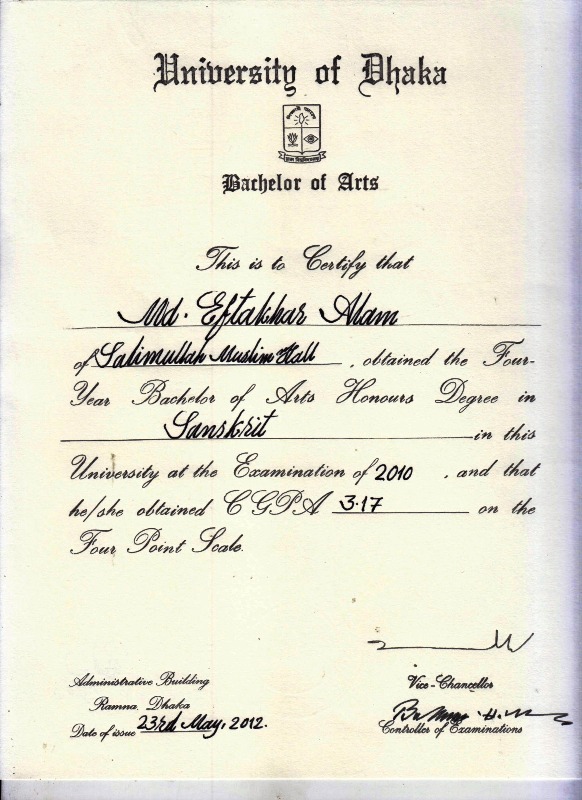 University of Dhaka
Bachelor of Arts
This is to Certify that
Md. Eftakhar Alam
of Salimullah Muslim Hall, obtained the Four-
Year Bachelor of Arts Honours Degree in
Sanskrit in this
University at the Examination of 2010, and that
he/she obtained CGPA 3.17 on the
Four Point Scale.
Administrative Building
Ramna, Dhaka
Date of issue 23rd May, 2012.
Vice-Chancellor
Controller of Examinations